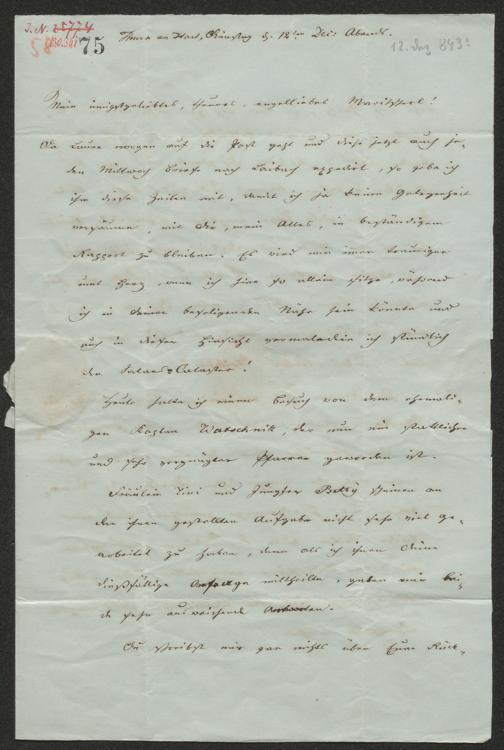 J. N. 25774
130.561
58
75
Thurn am Hart, Dienstag d. 12ten Dec: Abends.
12. Dez 843.
Mein innigstgeliebtes, theures, engelliebes Marischerl!
Da Laure morgen auf die Post geht und diese jetzt auch je-
den Mittwoch Briefe nach Laibach expedirt, so gebe ich
ihm diese Zeilen mit, damit ich ja keine Gelegenheit
versäume, mit dir, mein Alles, in beständigem
Rapport zu bleiben. Es wird mir immer trauriger
ums Herz, wenn ich hier so allein sitze, während
ich in deiner beseligenden Nähe sein könnte und
auch in dieser Hinsicht vermaledeie ich stündlich
den Cataster!
Heute hatte ich einen Besuch von dem ehemali-
gen Kaplan Watschnik, der nun ein stattlicher
und sehr vergnügter Pfarrer geworden ist.
Fräulein Lini und Jungfer Betty scheinen an
der ihnen gestellten Aufgabe nicht sehr viel ge-
arbeitet zu haben, denn als ich ihnen deine
dießfällige Anfrage mittheilte, gaben mir bei-
de sehr ausweichende Antworten.
Du schreibst mir gar nichts über Eure Rück-